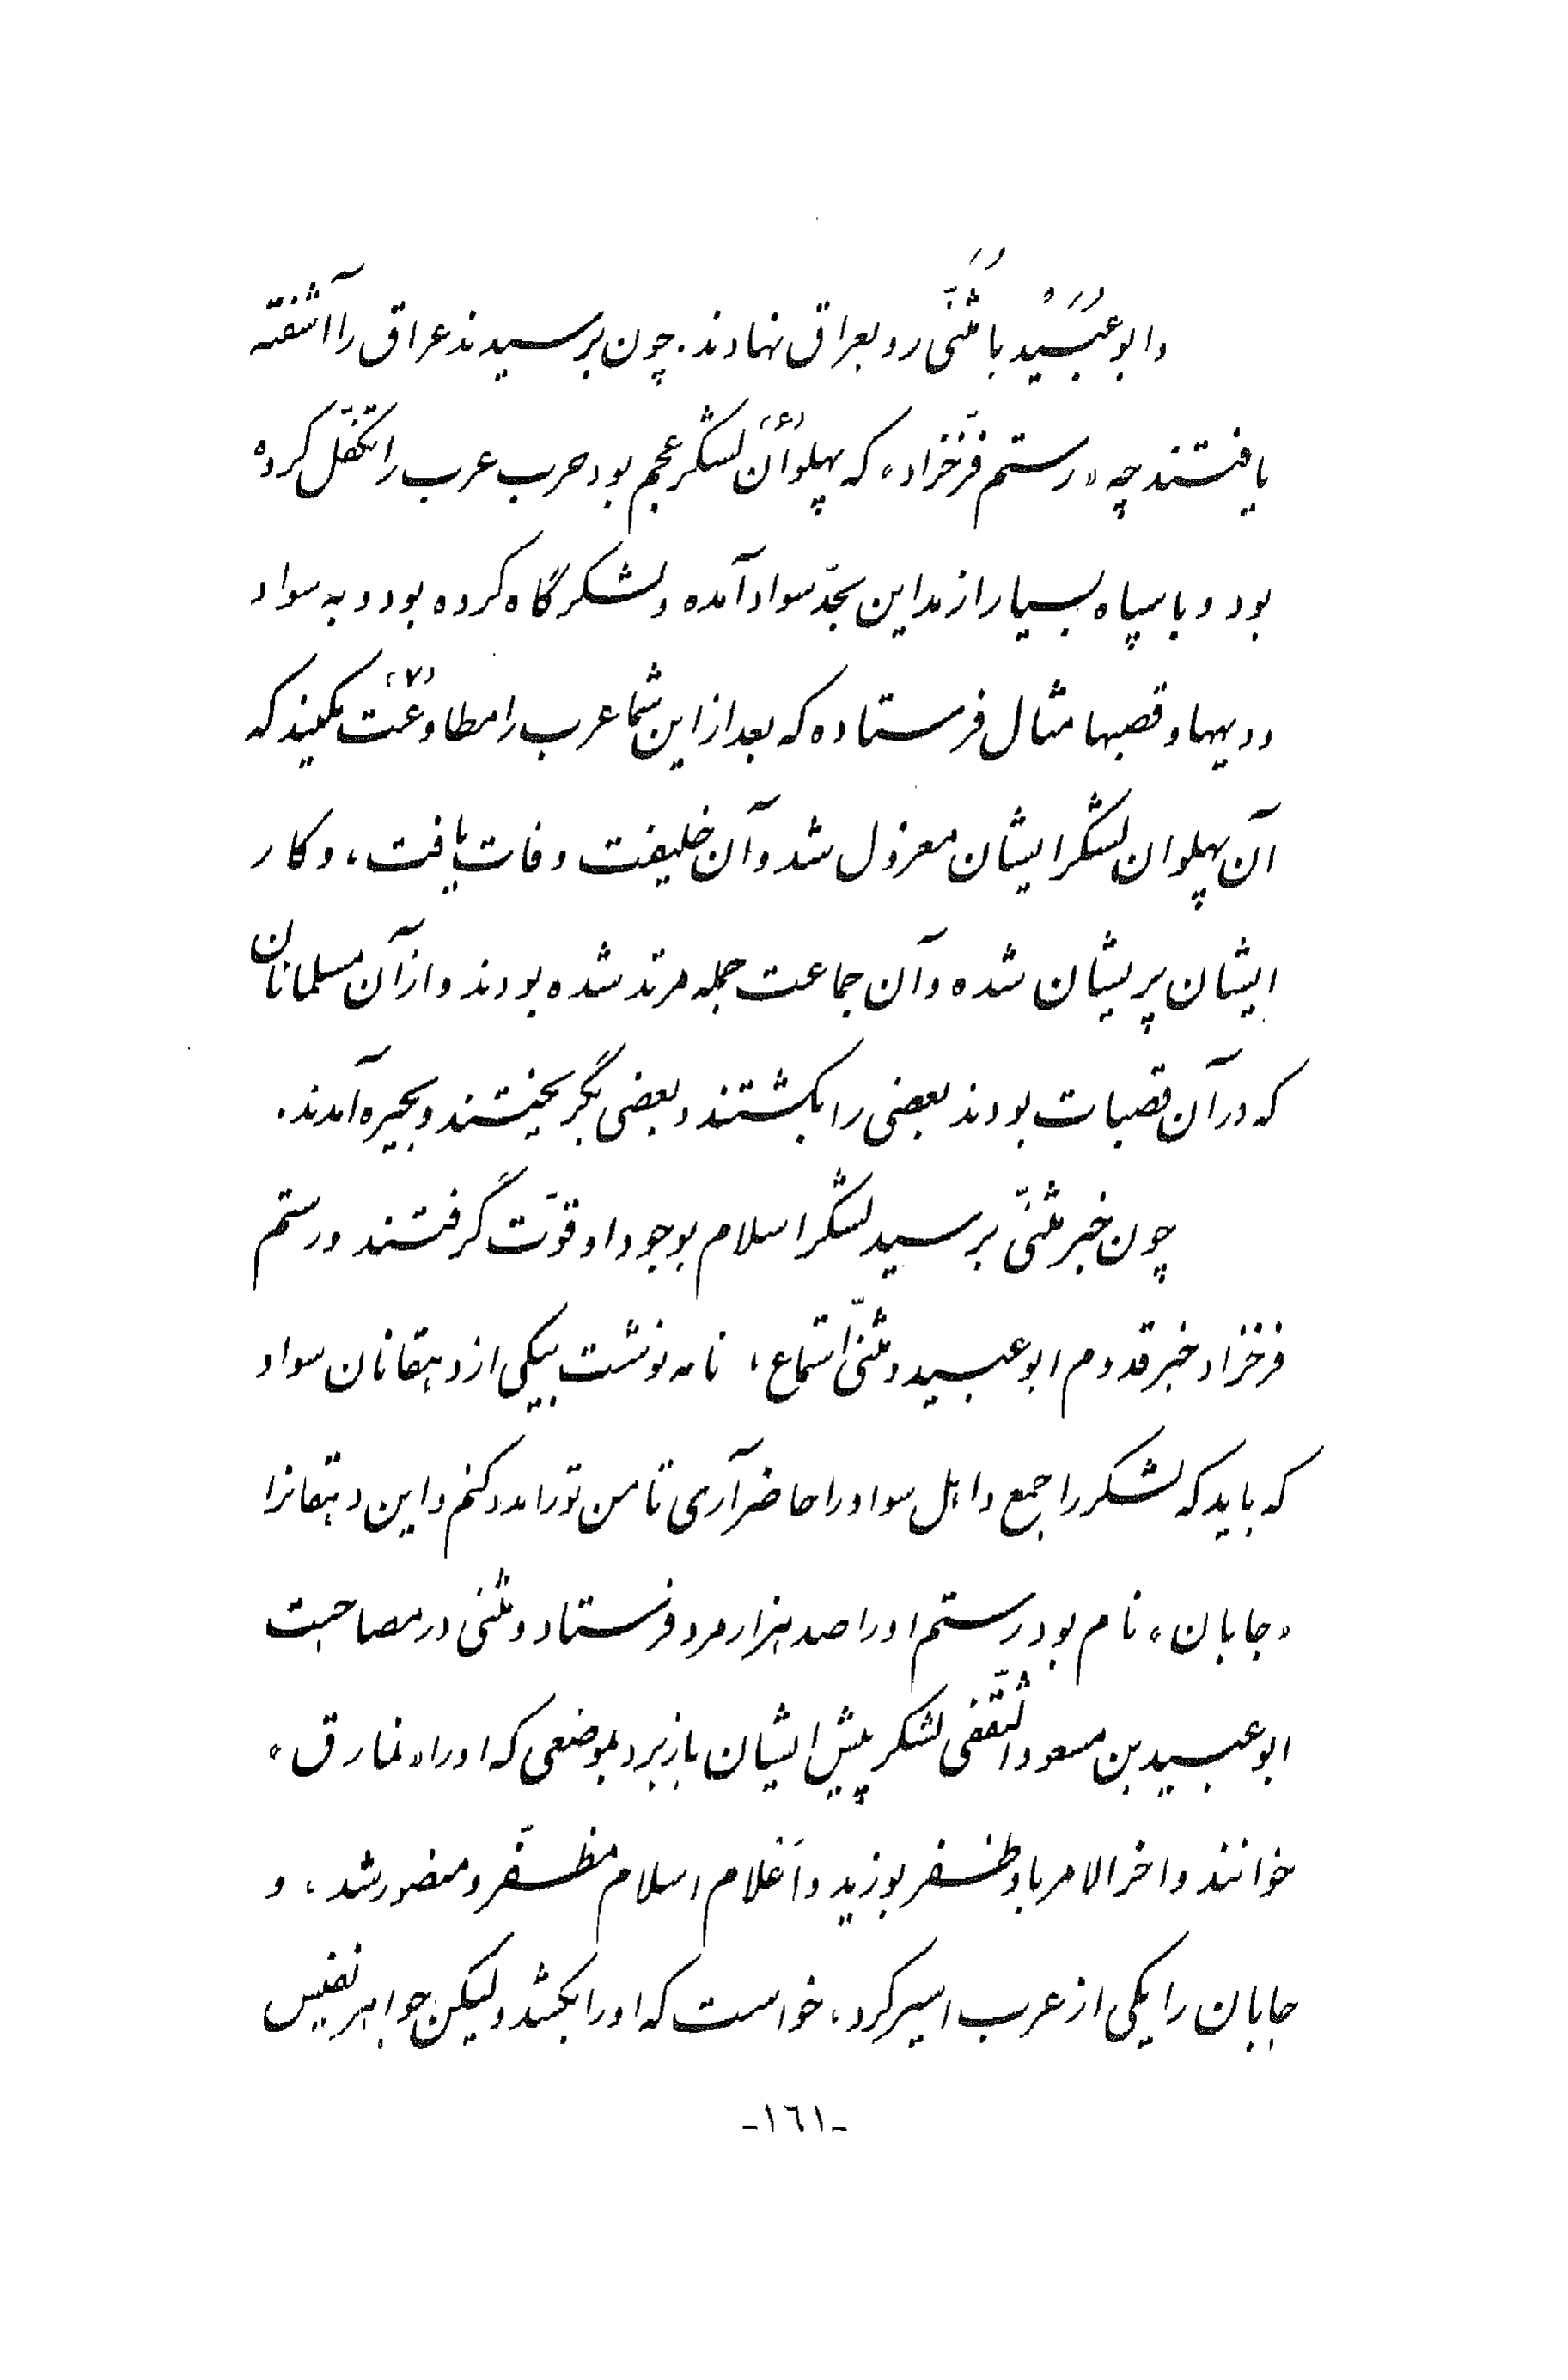 وابوعُبَیْد بامُثَنّی رو بعراق نهادند. چون برسیدند عراق را آشفته
یافتند چه «رستم فرّخزاد» که پهلوان(۶) لشکر عجم بود حرب عرب را تکفّل کرده
بود و با سپاه بسیار از مداین بحدّ سواد آمده و لشکرگاه کرده بود و به سواد
و دیهها و قصبها مثال فرستاده که بعد از این شما عرب را مطاوعت(۷) مکنید که
آن پهلوان لشکر ایشان معزول شد و آن خلیفت وفات یافت، و کار
ایشان پریشان شده و آن جماعت جمله مرتد شده بودند و از آن مسلمانان
که در آن قصبات بودند بعضی را بکشتند و بعضی بگریختند و بحیره آمدند.
چون خبر مثنّی برسید لشکر اسلام بوجود او قوّت گرفتند و رستم
فرخزاد خبر قدوم ابوعبید و مثنّی استماع، نامه نوشت بیکی از دهقانان سواد
که باید که لشکر را جمع و اهل سواد را حاضر آری تا من تو را مدد کنم و این دهقانرا
«جابان» نام بود رستم او را صد هزار مرد فرستاد و مثنی در مصاحبت
ابوعبید بن مسعود الثّقفی لشکر پیش ایشان باز برد بموضعی که او را «نمارق»
خوانند و اخرالامر باد ظفر بوزید و اَعلام اسلام مظفّر و منصور شد، و
جابان را یکی از عرب اسیر کرد، خواست که او را بکشد ولیکن جواهر نفیس
-١٦١-